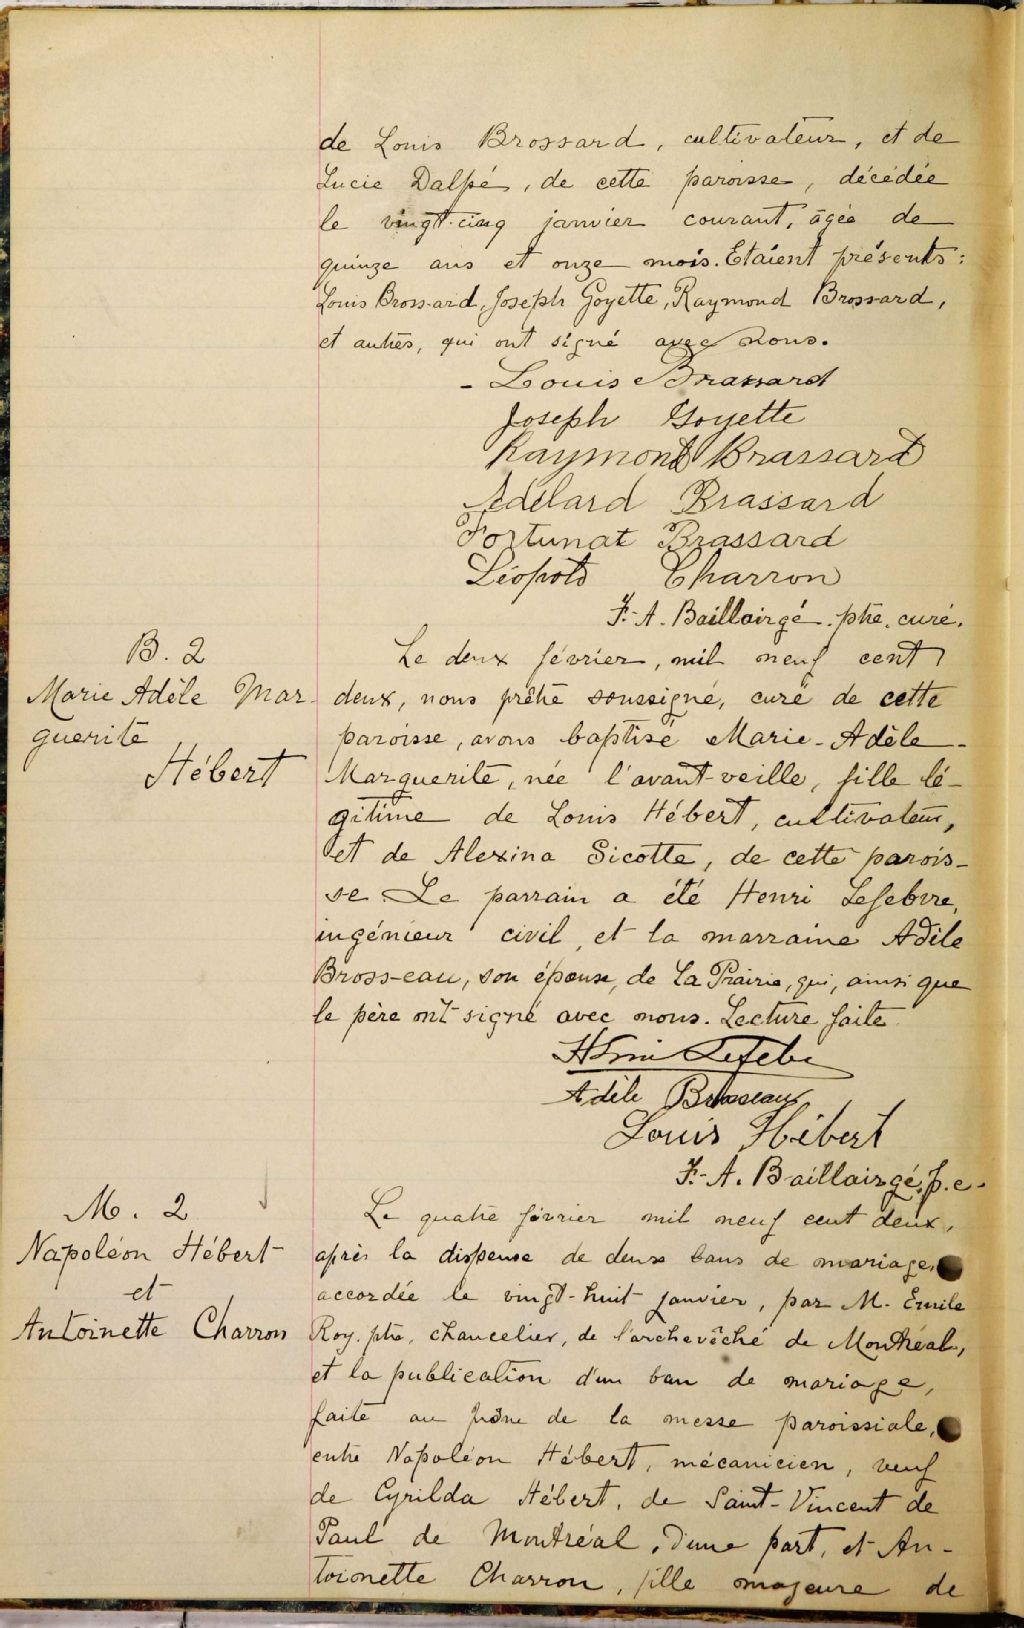 de Louis Brossard, cultivateur, et de
Lucie Dalpé, de cette paroisse, décédée
le vingt-cinq janvier courant, âgée de
quinze ans et onze mois. Etaient présents:
Louis Brossard, Joseph Goyette, Raymond Brossard,
et autres, qui ont signé avec nous.
- Louis Brassard
Joseph Goyette
Raymond Brassard
Adélard Brassard
Fortunat Brassard
Léopold Charron
F.-A. Baillairgé. ptre. curé.
B. 2
Marie Adèle Mar-
guerite
Hébert
Le deux février, mil neuf cent
deux, nous prêtre soussigné, curé de cette
paroisse, avons baptisé Marie-Adèle-
Marguerite, née l'avant-veille, fille lé-
gitime de Louis Hébert, cultivateur,
et de Alexina Sicotte, de cette parois-
se Le parrain a été Henri Lefebvre,
ingénieur civil, et la marraine Adèle
Brosseau, son épouse, de La Prairie, qui, ainsi que
le père ont signé avec nous. Lecture faite.
Henri Lefebvre
Adèle Brosseau
Louis Hébert
F.-A. Baillairgé, p.c.
M. 2
Napoléon Hébert
et
Antoinette Charron
Le quatre février mil neuf cent deux,
après la dispense de deux bans de mariage,
accordée le vingt-huit janvier, par M. Emile
Roy. ptre, chancelier, de l'archevêché de Montréal,
et la publication d'un ban de mariage,
faite au prône de la messe paroissiale,
entre Napoléon Hébert, mécanicien, veuf
de Cyrilda Hébert, de Saint-Vincent de
Paul de Montréal, d'une part, et An-
toinette Charron, fille majeure de